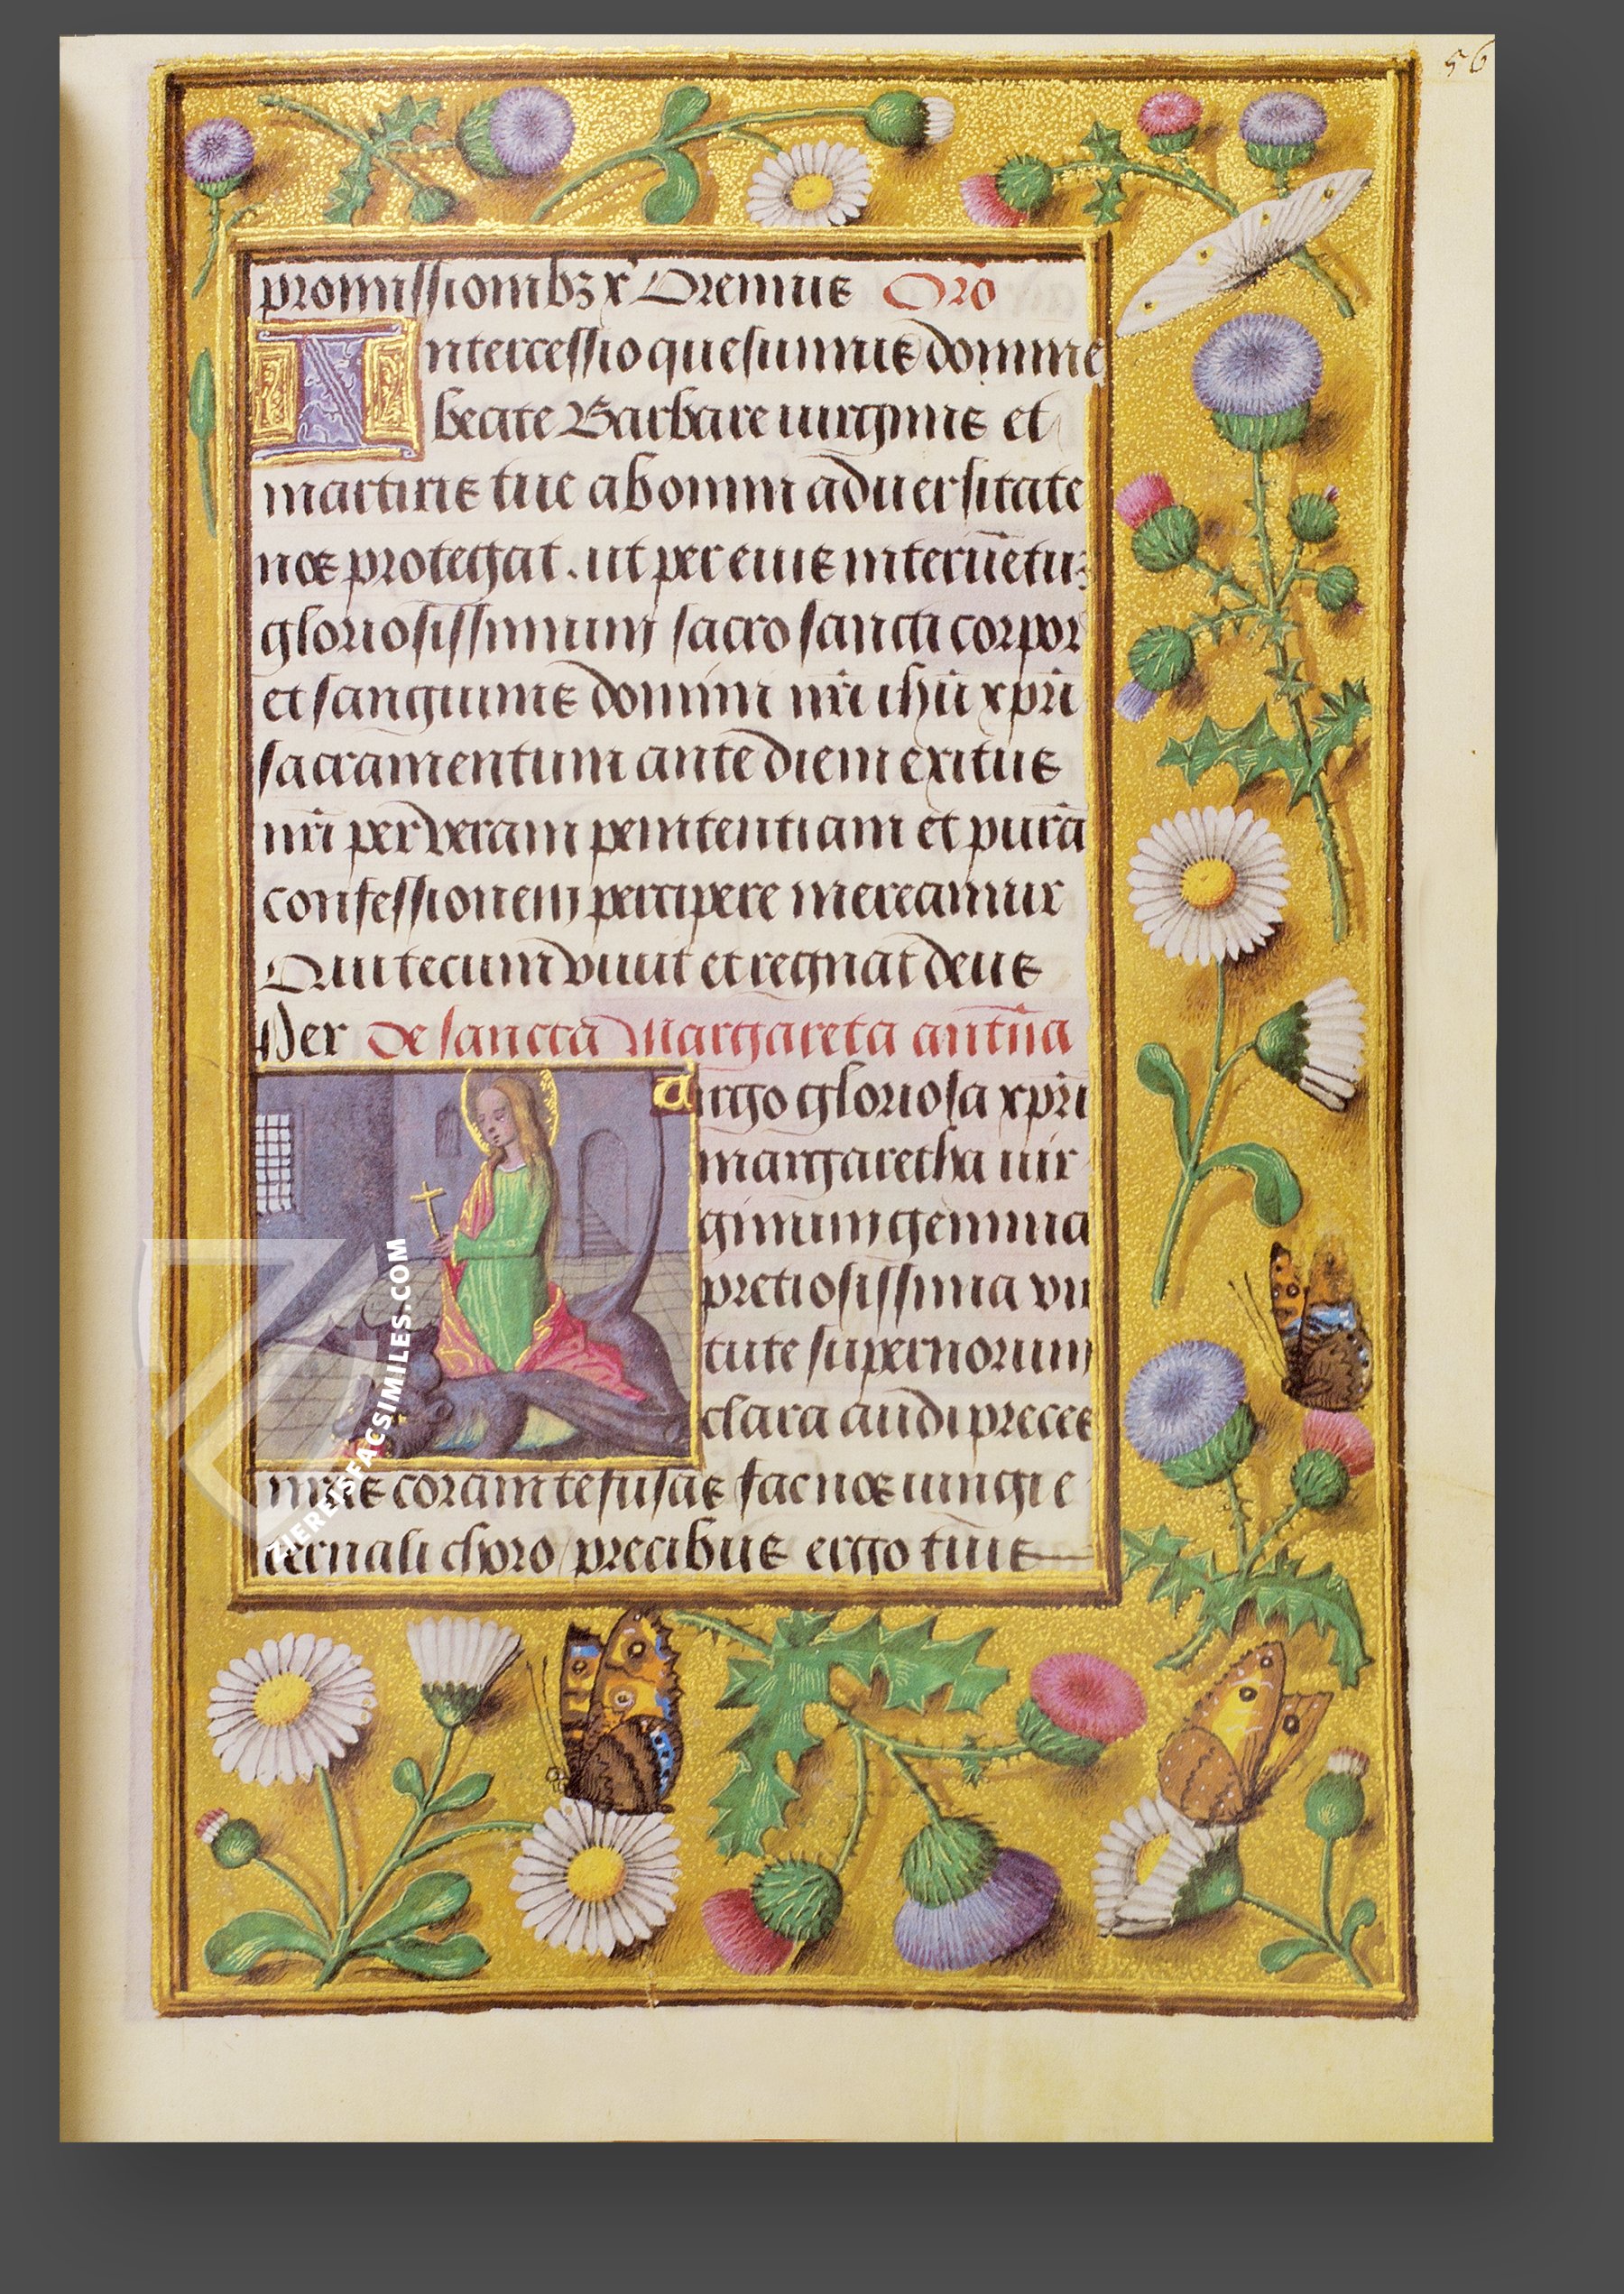 56
promissionibꝫ x̄ Oremus Orō
Intercessio quesumus domine
beate Barbare uirginis et
martiris tue ab omni aduersitate
nos protegat. ut per eius interuētuꝫ
gloriosissimum sacro sancti corpor
et sanguinis domini nr̄i ihū xpr̄i
sacramentum ante diem exitus
nr̄i per veram penitentiam et purā
confessionem percipere mereamur
Qui tecum viuit et regnat deus
Per De sancta Margareta antīna
Uirgo gloriosa xpr̄i
margaretha uir
ginum gemma
pretiosissima vir
tute supernorum
clara audi preces
nr̄as coram te fusas fac nos iungi e
ternali choro precibus ergo tuis
ZIEREISFACSIMILES.COM